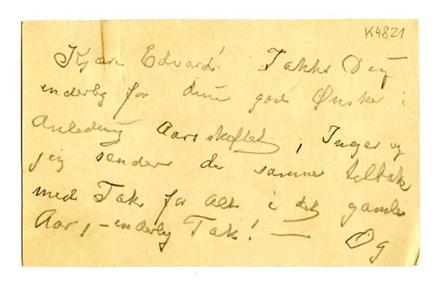 K4821
Kjære Edvard! Takke Dig
inderlig for dine gode Ønsker i
Anledning Aarsskiftet, Inger og
jeg sender de samme tilbake
med Tak for alt i det gamle
Aar, – inderlig Tak! — Og